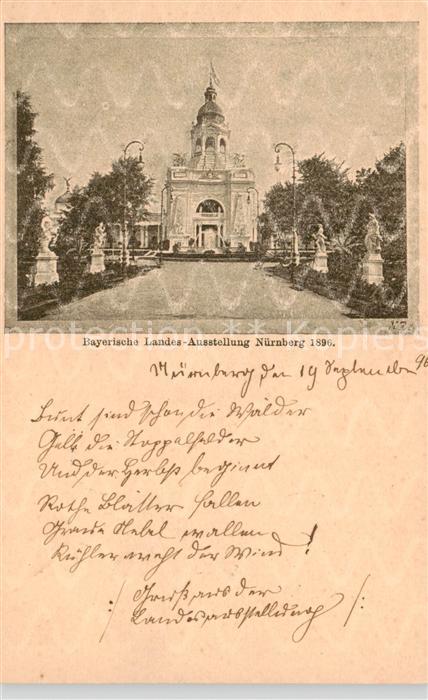 Bayerische Landes-Ausstellung Nürnberg 1896.
Nürnberg den 19 September 96
Bunt sind schon die Wälder
Gelb die Stoppelfelder
Und der Herbst beginnt
Rothe Blätter fallen
Graue Nebel wallen
Kühler weht der Wind!
/: Gruß aus der :/
Landesausstellung